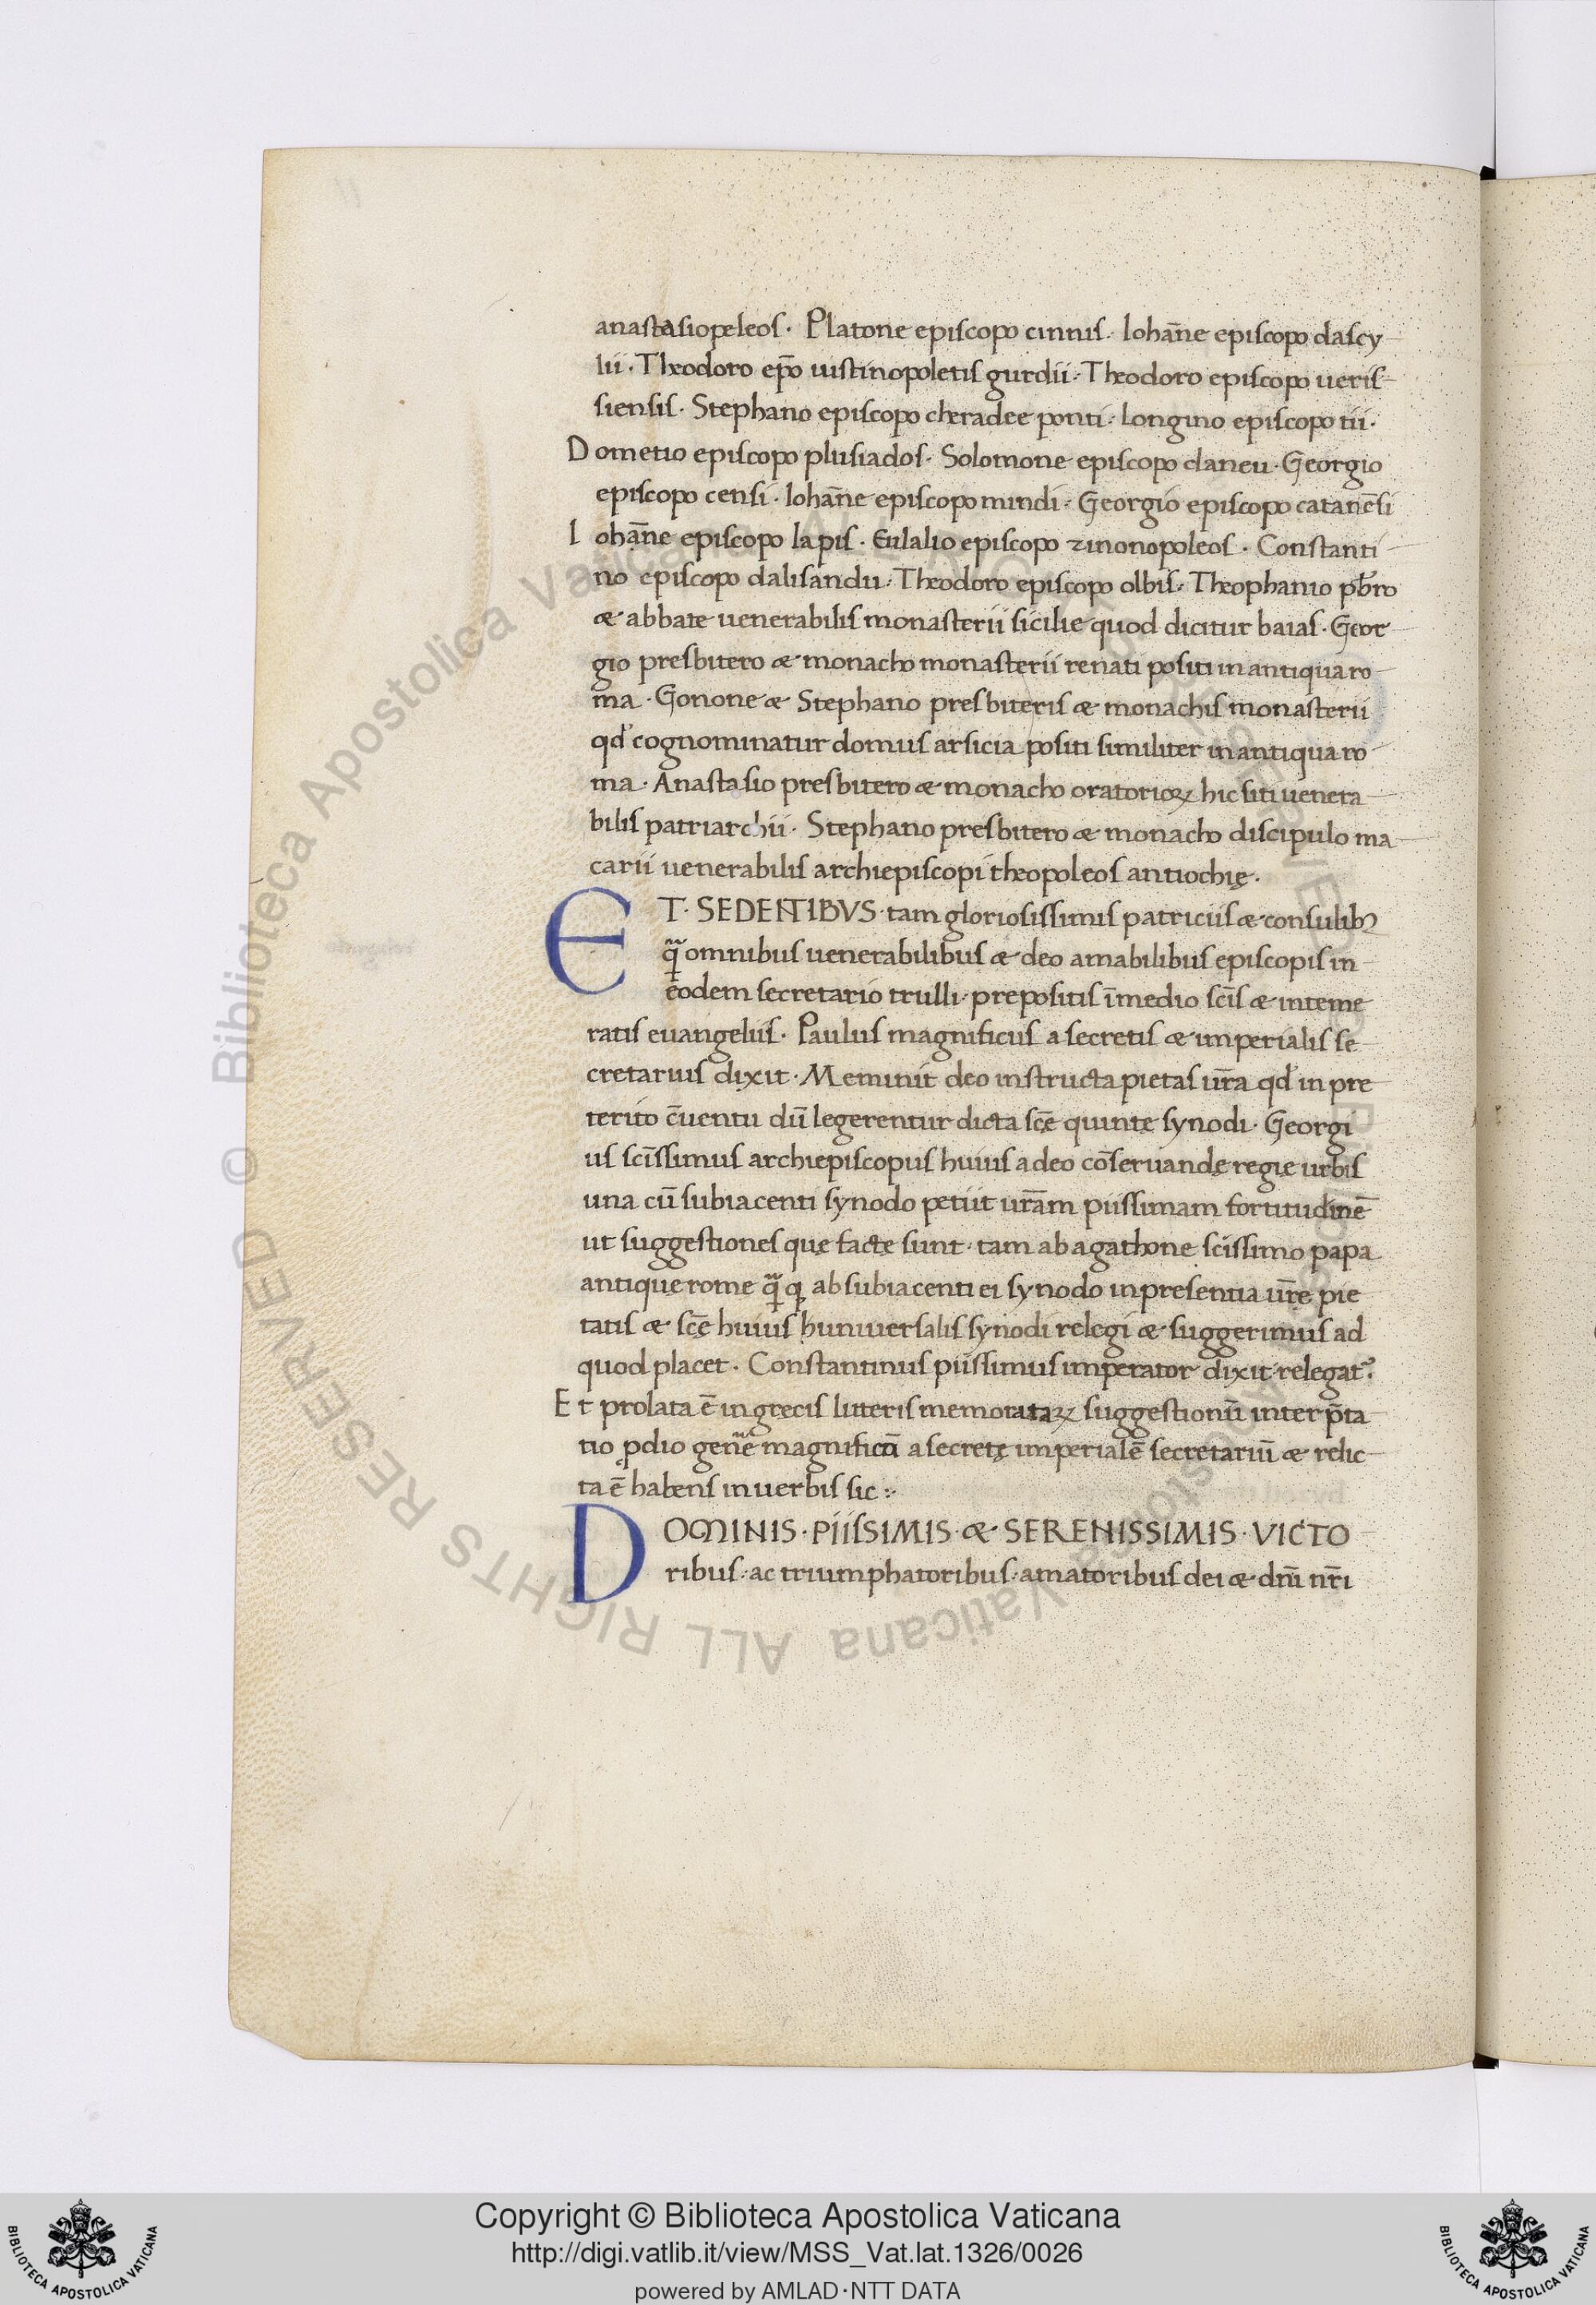 anastasiopeleos. Platone episcopo cinnis. Iohāne episcopo dascy
lii. Theodoro ep̄o iustinopoletis gurdii. Theodoro episcopo ueris
siensis. Stephano episcopo cheradee ponti. Longino episcopo tii.
Dometio episcopo plusiados. Solomone episcopo daneu. Georgio
episcopo censi. Iohāne episcopo mindi. Georgio episcopo catanēsi
Iohāne episcopo lapis. Eulalio episcopo zinonopoleos. Constanti
no episcopo dalisandu. Theodoro episcopo olbis. Theophanio pb̄ro
& abbate uenerabilis monasterii sicilie quod dicitur baias. Geor
gio presbitero & monacho monasterii renati positi in antiqua ro
ma. Gonone & Stephano presbiteris & monachis monasterii
qd̄ cognominatur domus arsicia positi similiter in antiqua ro
ma. Anastasio presbitero & monacho oratorioꝝ hic siti uenera
bilis patriarchii. Stephano presbitero & monacho discipulo ma
carii uenerabilis archiepiscopi theopoleos antiochię.
ET. SEDENTIBVS. tam gloriosissimis patriciis & consulibꝰ
qͣꝫ omnibus uenerabilibus & deo amabilibus episcopis in
eodem secretario trulli. prepositis ī medio scīs & inteme
ratis euangeliis. Paulus magnificus a secretis & imperialis se
cretarius dixit. Meminit deo instructa pietas ur̄a qd̄ in pre
terito c̄uentu dū legerentur dicta scē quintę synodi. Georgi
us scīssimus archiepiscopus huius a deo cōseruandę regię urbis
una cū subiacenti synodo petiit ur̄am piissimam fortitudinē
ut suggestiones quę factę sunt. tam ab agathone scīssimo papa
antique rome qͣꝫ qꝫ ab subiacenti ei synodo in presentia ur̄ę pie
tatis & scę̄ huius huniuersalis synodi relegi & suggerimus ad
quod placet. Constantinus piissimus imperator dixit. relegat᷑.
Et prolata ē in grecis litteris memorataꝝ suggestionū interp̄ta
tio ꝑ dio genē magnificū a secretę imperialē secretariū & relic
ta ē habens in uerbis sic:
DOMINIS. PIISSIMIS. & SERENISSIMIS. VICTO
ribus. ac triumphatoribus. amatoribus dei & dnī nr̄i
© Biblioteca Apostolica Vaticana ALL RIGHTS RESERVED
Copyright © Biblioteca Apostolica Vaticana
http://digi.vatlib.it/view/MSS_Vat.lat.1326/0026
powered by AMLAD·NTT DATA
BIBLIOTECA APOSTOLICA VATICANA
BIBLIOTECA APOSTOLICA VATICANA